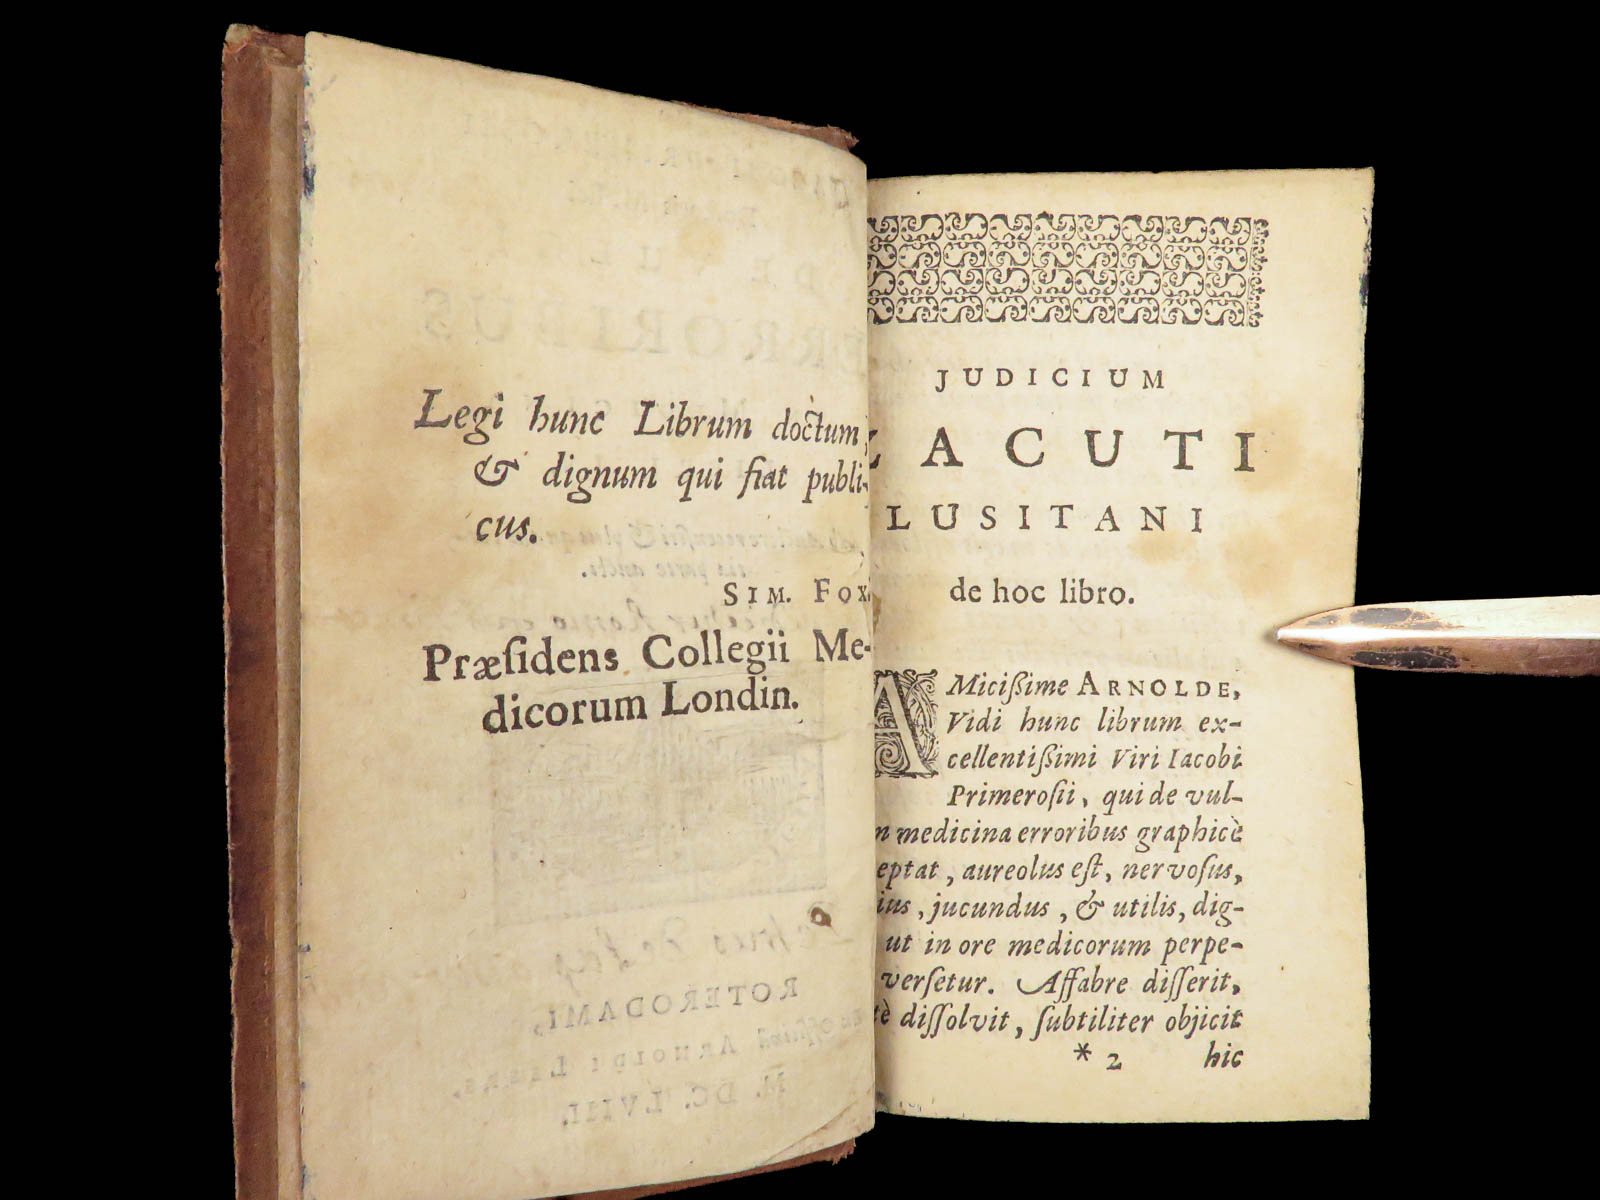 Legi hunc Librum doctum
& dignum qui fiat publi-
cus.
SIM. FOX
Præſidens Collegii Me-
dicorum Londin.
JUDICIUM
ZACUTI
LUSITANI
de hoc libro.
AMicißime ARNOLDE,
Vidi hunc librum ex-
cellentißimi Viri Iacobi
Primeroſii, qui de vul-
medicina erroribus graphicè
aureolus eſt, nervoſus,
jucundus, & utilis, dig-
ut in ore medicorum perpe-
verſetur. Affabre diſſerit,
diſſolvit, ſubtiliter objicit
* 2 hic
ROTERODAMI,
ARNOLDI LEERS,
M. DC. LVIII.